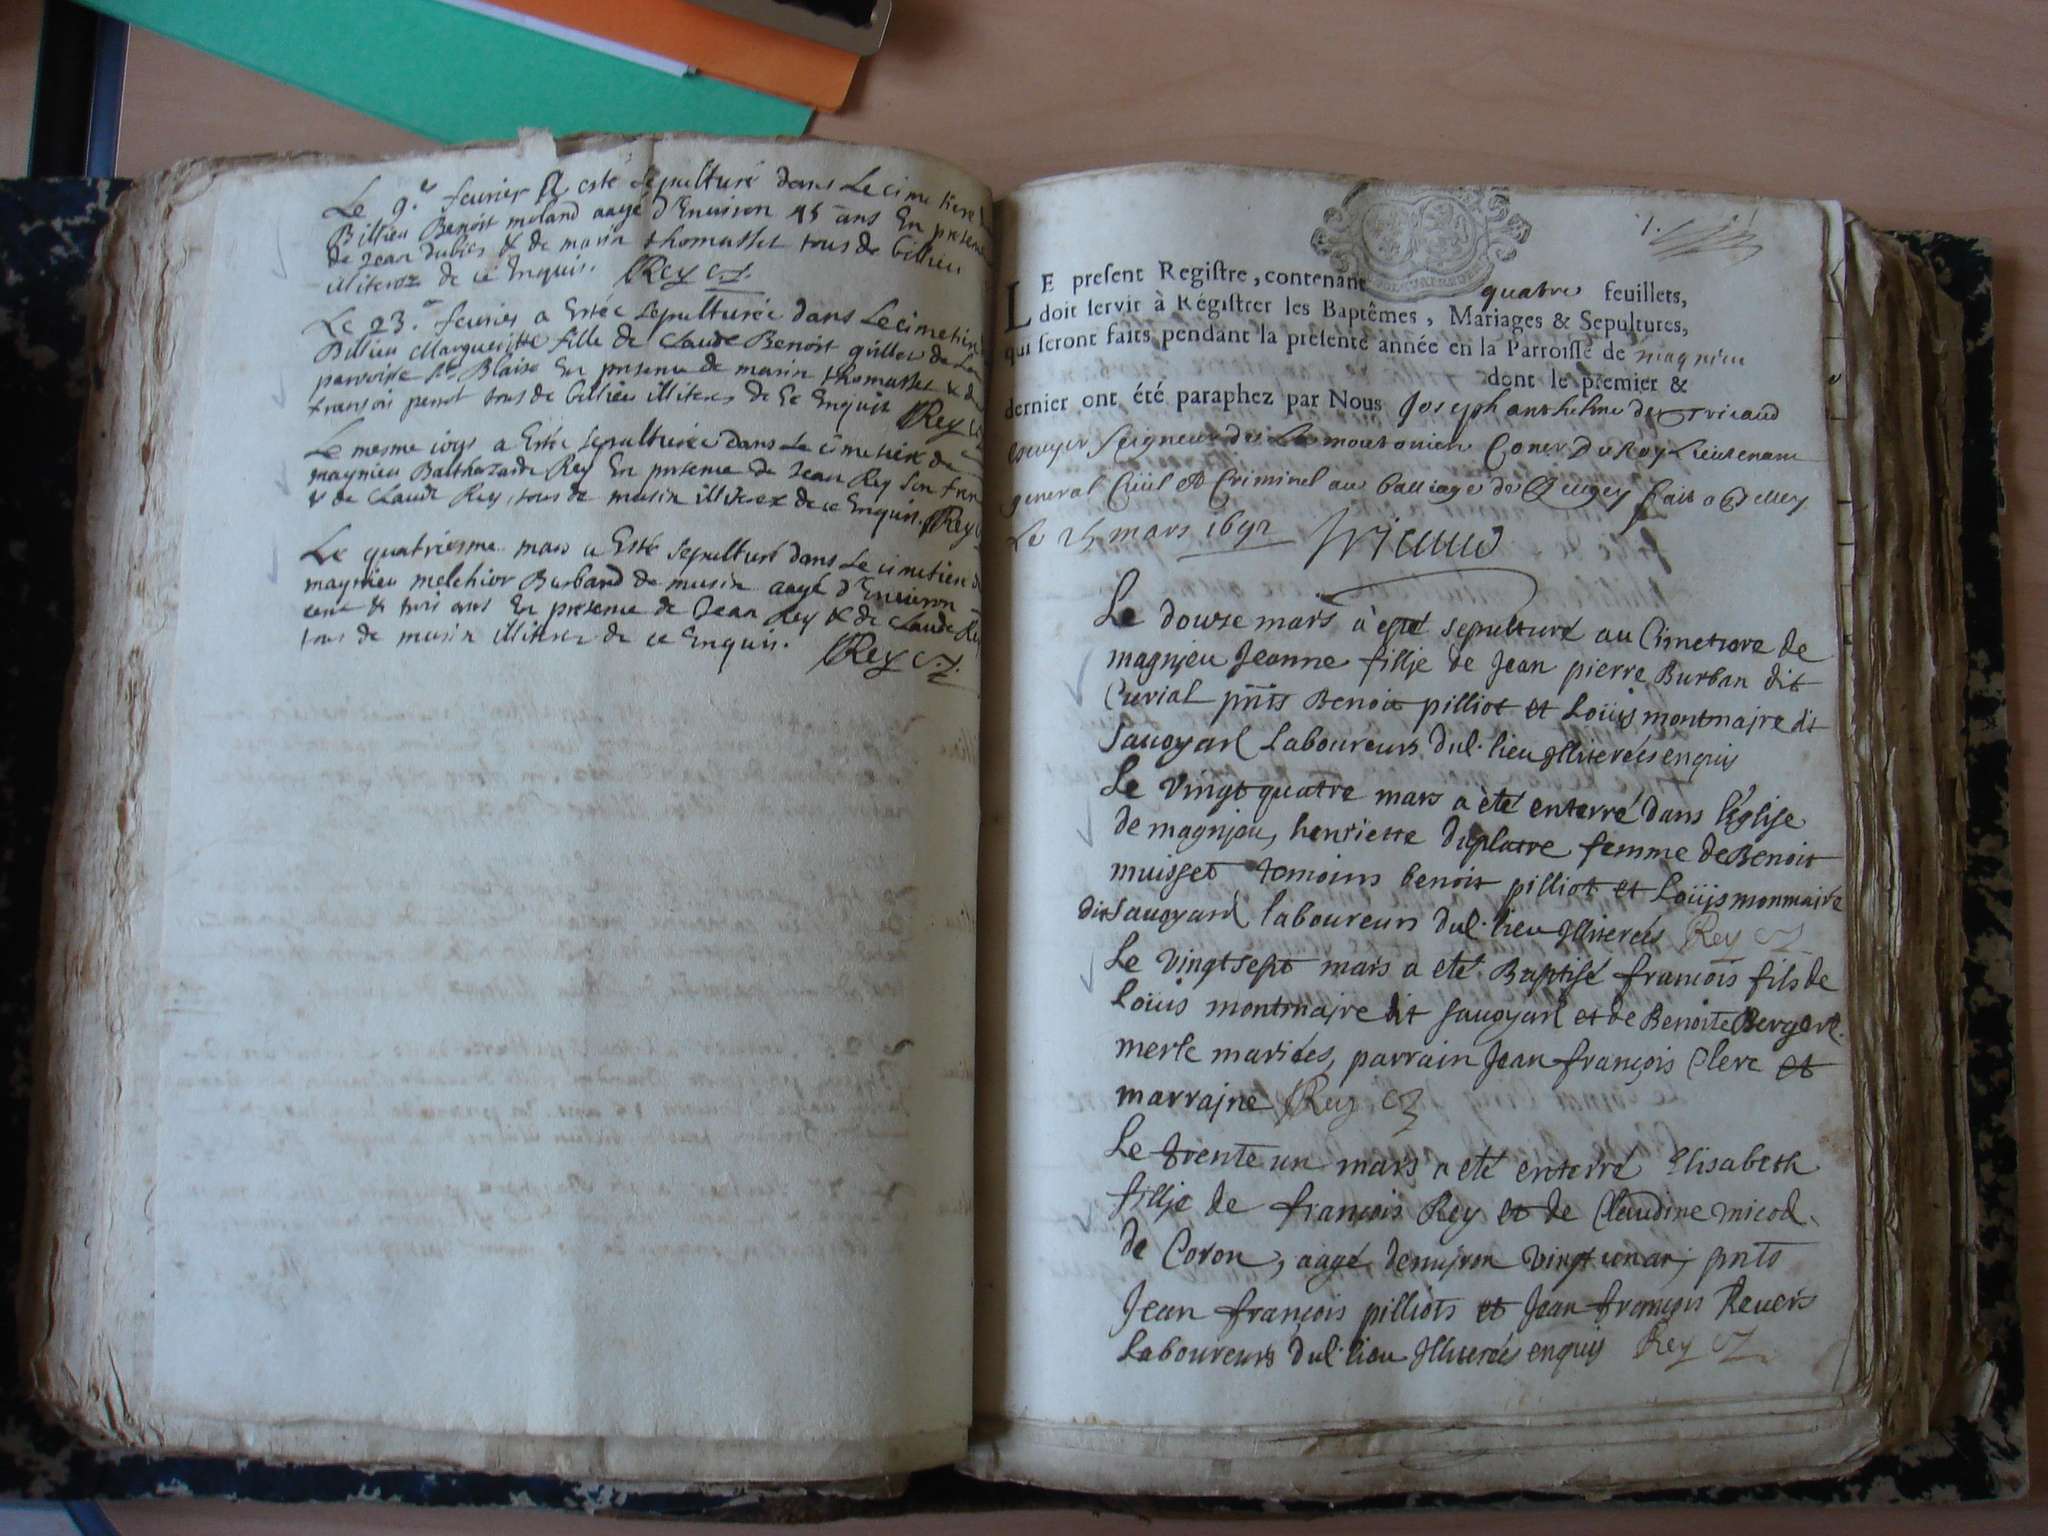 Le 9.e feurier A esté sepulturé dans Le cimetiere
Billieu Benoist moland aagé d'Enuiron 45 ans En presen
de Jean dubois & de marin thomasset tous de billieu
illiterez de ce Enquis. Rey
Le 23.e feurier a Estée sepulturée dans Le cimetier
Billieu Margueritte fille de Claude Benoist de
parroisse St Blaise En presence de marin thomasset & d
fransois perrot tous de billieu illiteres de Ce Enquis Rey
Le mesme iour a Esté sepulturée dans Le cimetiere de
magnieu Balthazarde Rey En presence de Jean Rey son frer
& de Claude Rey, tous de musin illiterez de ce Enquis. Rey
Le quatriesme mars a Esté sepulturé dans Le cimetiere d
magnieu melchior Burband de musin aagé d'Enuiron
cent & trois ans En presence de Jean Rey & de Claude Re
tous de musin illiterez de ce Enquis. Rey
1.
LE present Registre, contenant quatre feuillets,
doit servir à Régistrer les Baptêmes, Mariages & Sepultures,
qui seront faits pendant la présente année en la Parroisse de magnieu
dont le premier &
dernier ont été paraphez par Nous Joseph anthelme de Tricaud
escuyer Seigneur de Coner Du Roy Lieutenant
general Ciuil et Criminel au balliage de Beugey fait a Belley
Le 25 mars 1692 Tricaud
Le douze mars à eté sepulturé au Cimetiore de
magnjeu Jeanne fillje de Jean pierre Burban dit
Curial pnts Benoit pilliot et Loüis montmajre dit
Sauoyard Laboureurs dul. lieu Illiterées enquis
Le vingt quatre mars a èté enterré dans l'église
de magnjeu, henriette duplatre femme de Benoit
muisset temoins benoit pilliot et Loüis monmaire
dit Sauoyard laboureurs dul. lieu Illiterées Rey
Le vingt sept mars a eté Baptisé francois fils de
Loüis montmajre dit sauoyard et de Benoite Berger
merle mariées, parrain Jean françois Clerc et
marrajne Rey
Le trente un mars a eté enterré Elisabeth
fillje de françois Rey et de Claudine micod
de Coron, aagé denujron vingt un an, pnts
Jean françois pilliots et Jean françois Reueis
Laboureurs dul. lieu Illiterées enquis Rey